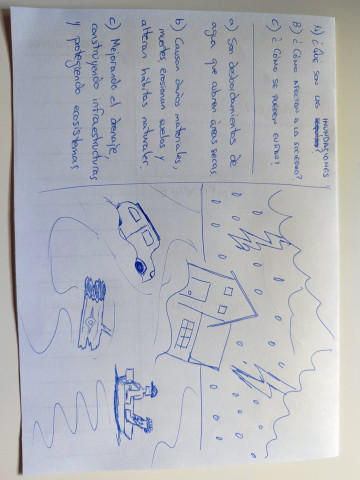 A) ¿Qué son las INUNDACIONES y
?
B) ¿Cómo afectan a la sociedad?
C) ¿Cómo se pueden evitar?
a) Son desbordamientos de
agua que cubren áreas secas.
b) Causan daños materiales,
muertes, erosionan suelos y
alteran hábitats naturales.
c) Mejorando el drenaje,
construyendo infraestructuras
y protegiendo ecosistemas